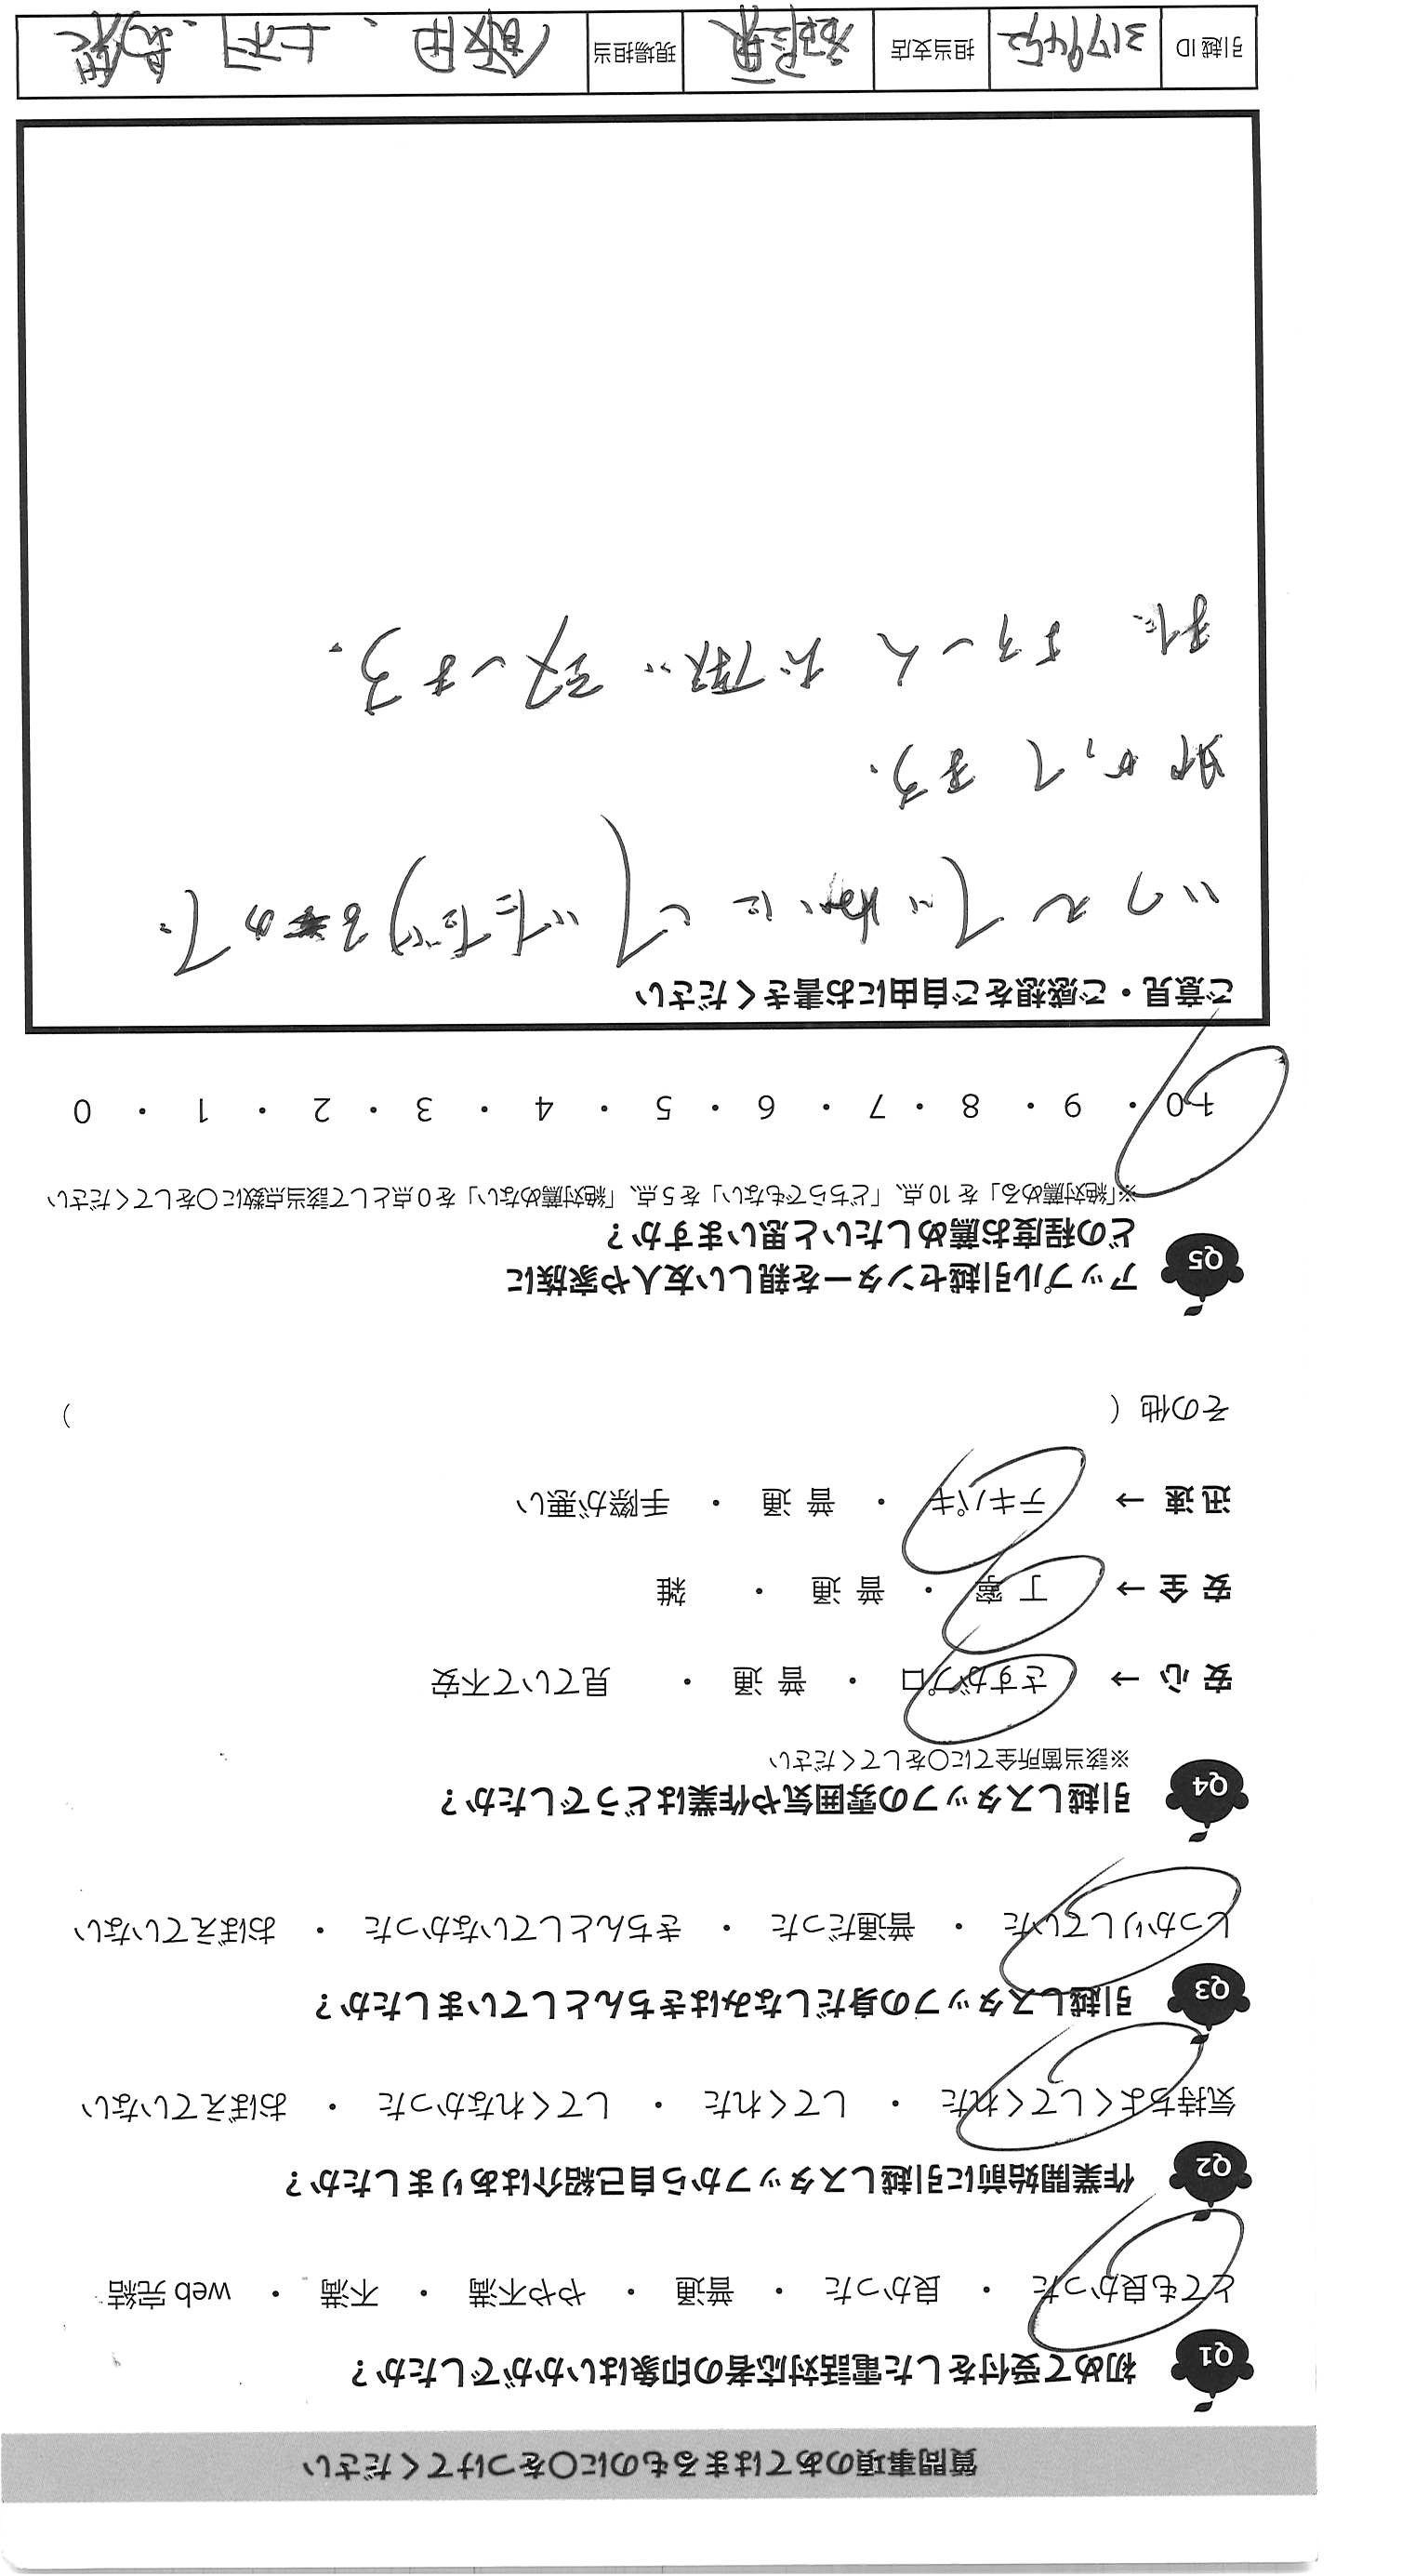 質問事項のあてはまるものに○をつけてください
Q1 初めて受付をした電話対応者の印象はいかがでしたか？
とても良かった ・ 良かった ・ 普通 ・ やや不満 ・ 不満 ・ web 完結
Q2 作業開始前に引越しスタッフから自己紹介はありましたか？
気持ちよくしてくれた ・ してくれた ・ してくれなかった ・ おぼえていない
Q3 引越しスタッフの身だしなみはきちんとしていましたか？
しっかりしていた ・ 普通だった ・ きちんとしていなかった ・ おぼえていない
Q4 引越しスタッフの雰囲気や作業はどうでしたか？
※該当箇所全てに○をしてください
安 心 → さすがプロ ・ 普 通 ・ 見ていて不安
安 全 → 丁 寧 ・ 普 通 ・ 雑
迅 速 → テキパキ ・ 普 通 ・ 手際が悪い
その他（ ）
Q5 アップル引越センターを親しい友人や家族に
どの程度お薦めしたいと思いますか？
※「絶対薦める」を 10 点、「どちらでもない」を 5 点、「絶対薦めない」を 0 点として該当点数に○をしてください
10 ・ 9 ・ 8 ・ 7 ・ 6 ・ 5 ・ 4 ・ 3 ・ 2 ・ 1 ・ 0
ご意見・ご感想をご自由にお書きください
いつも ていねいに して いただけるので
助かってます.
また よろしく お願い 致します.
引越 ID 3179452 担当支店 現場担当 飯田 .